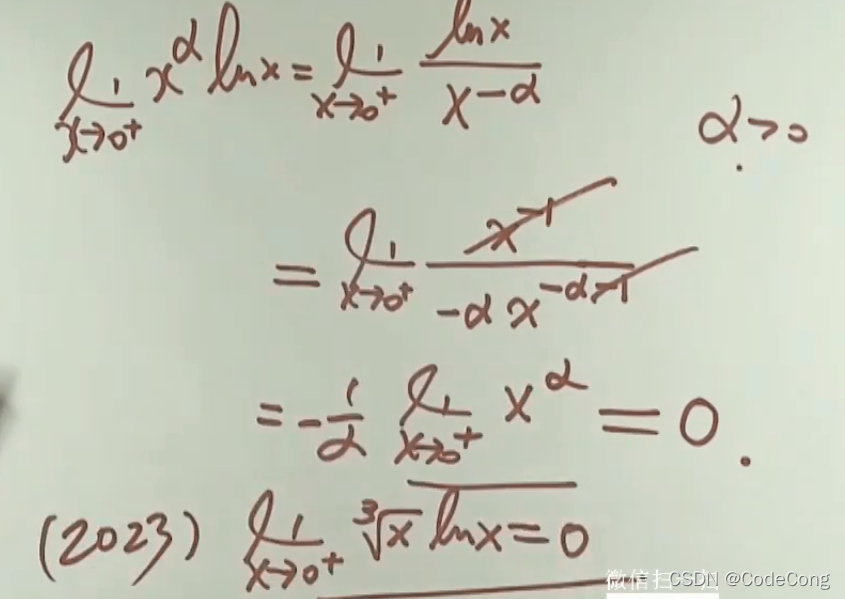 lim x→0⁺ x^α ln x = lim x→0⁺ ln x / x^(-α)
α>0
= lim x→0⁺ x^(-1) / -α x^(-α-1)
= -1/α lim x→0⁺ x^α = 0.
(2023) lim x→0⁺ ∛x ln x = 0
微信扫一扫
CSDN @CodeCong